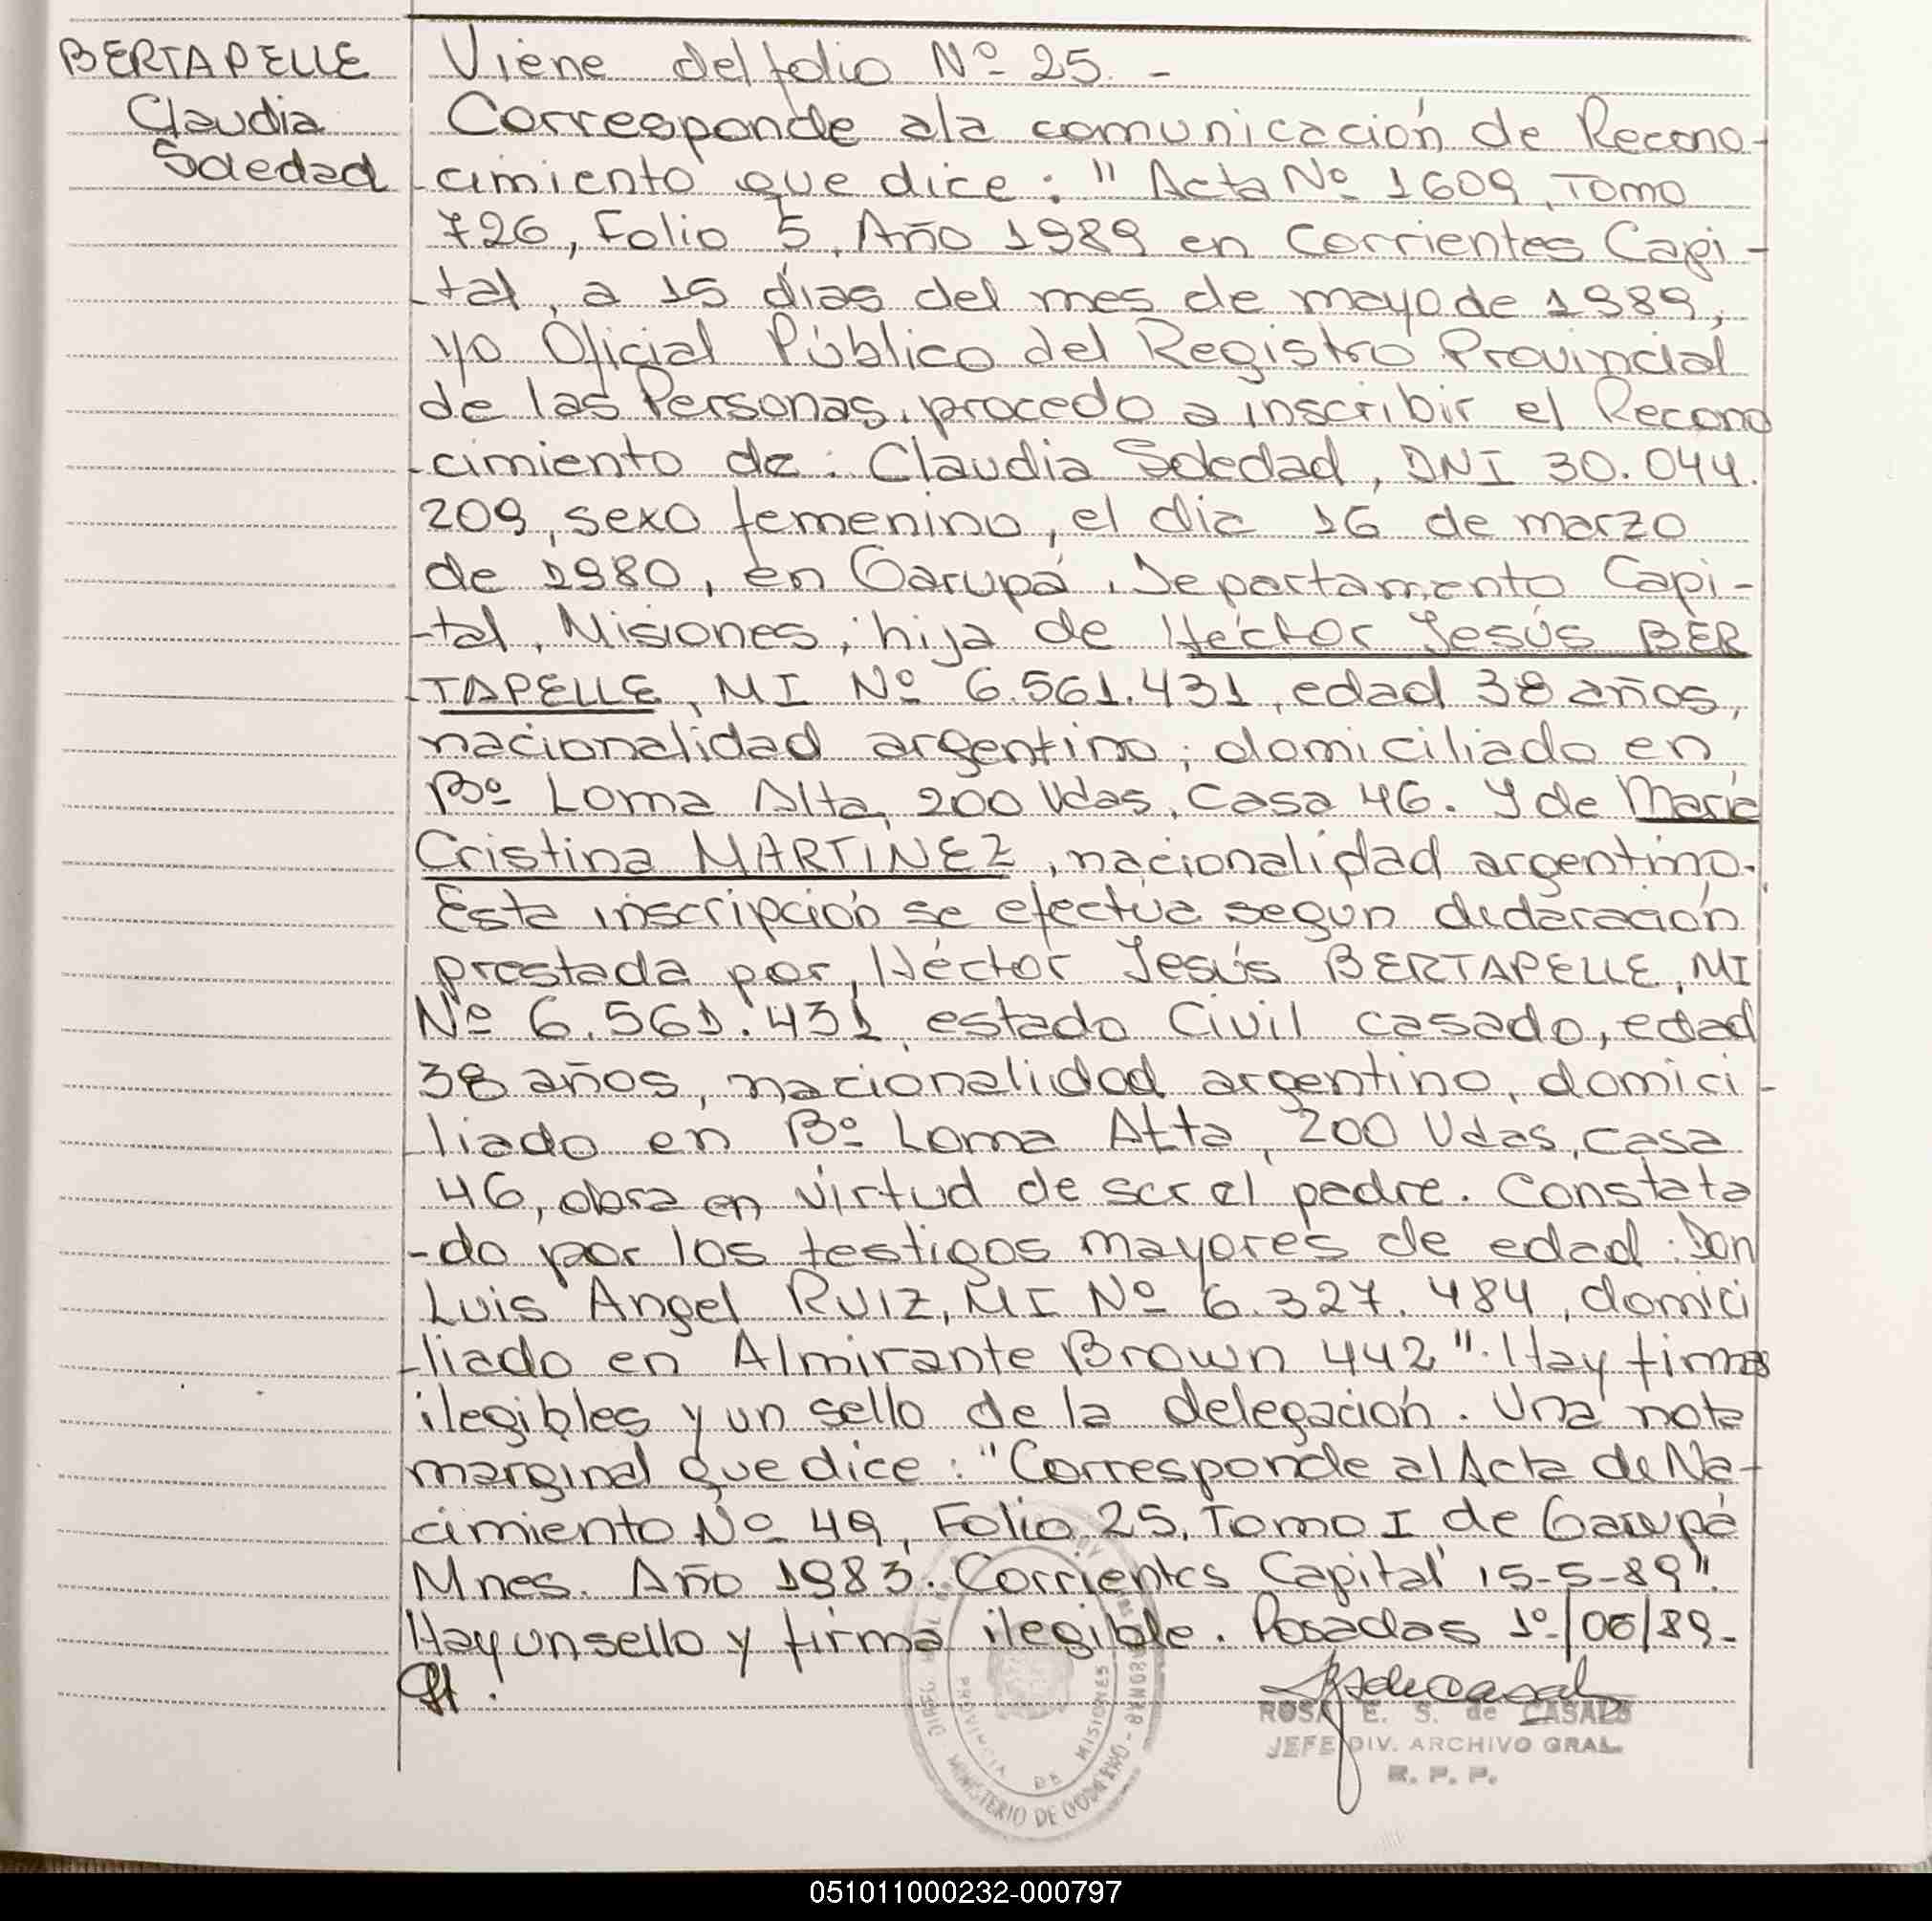 BERTAPELLE
Claudia
Soledad
Viene del folio Nº 25. -
Corresponde a la comunicación de Recono-
cimiento que dice: "Acta Nº 1609, Tomo
726, Folio 5, Año 1989 en Corrientes Capi-
-tal, a 15 días del mes de mayo de 1989,
yo Oficial Público del Registro Provincial
de las Personas, procedo a inscribir el Recono
-cimiento de: Claudia Soledad, DNI 30.044.
209, sexo femenino, el dia 16 de marzo
de 1980, en Garupá, Departamento Capi-
-tal, Misiones, hija de Héctor Jesús BER
-TAPELLE, MI Nº 6.561.431, edad 38 años,
nacionalidad argentino, domiciliado en
Bº Loma Alta, 200 Vdas, Casa 46. Y de María
Cristina MARTINEZ, nacionalidad argentino.
Esta inscripción se efectúa segun declaración
prestada por Héctor Jesús BERTAPELLE, MI
Nº 6.561.431, estado Civil casado, edad
38 años, nacionalidad argentino, domici-
liado en Bº Loma Alta, 200 Vdas, casa
46, obra en virtud de ser el padre. Constata
-do por los testigos mayores de edad: Don
Luis Angel RUIZ, MI Nº 6.327.484, domici
-liado en Almirante Brown 442". Hay firmas
ilegibles y un sello de la delegación. Una nota
marginal que dice: "Corresponde al Acta de Na-
cimiento Nº 49, Folio 25, Tomo I de Garupá
Mnes. Año 1983. Corrientes Capital 15-5-89".
Hay un sello y firma ilegible. Posadas 1º/06/89.-
ROSA E. S. de CASALS
JEFE DIV. ARCHIVO GRAL.
R. P. P.
PROVINCIA DE MISIONES
MINISTERIO DE GOBIERNO
051011000232-000797